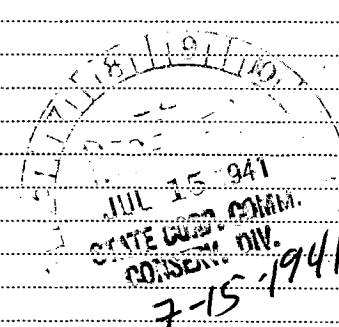 7 8 9 10
JUL 15 941
STATE CORP. COMM.
CONSERV. DIV.
7-15-1941